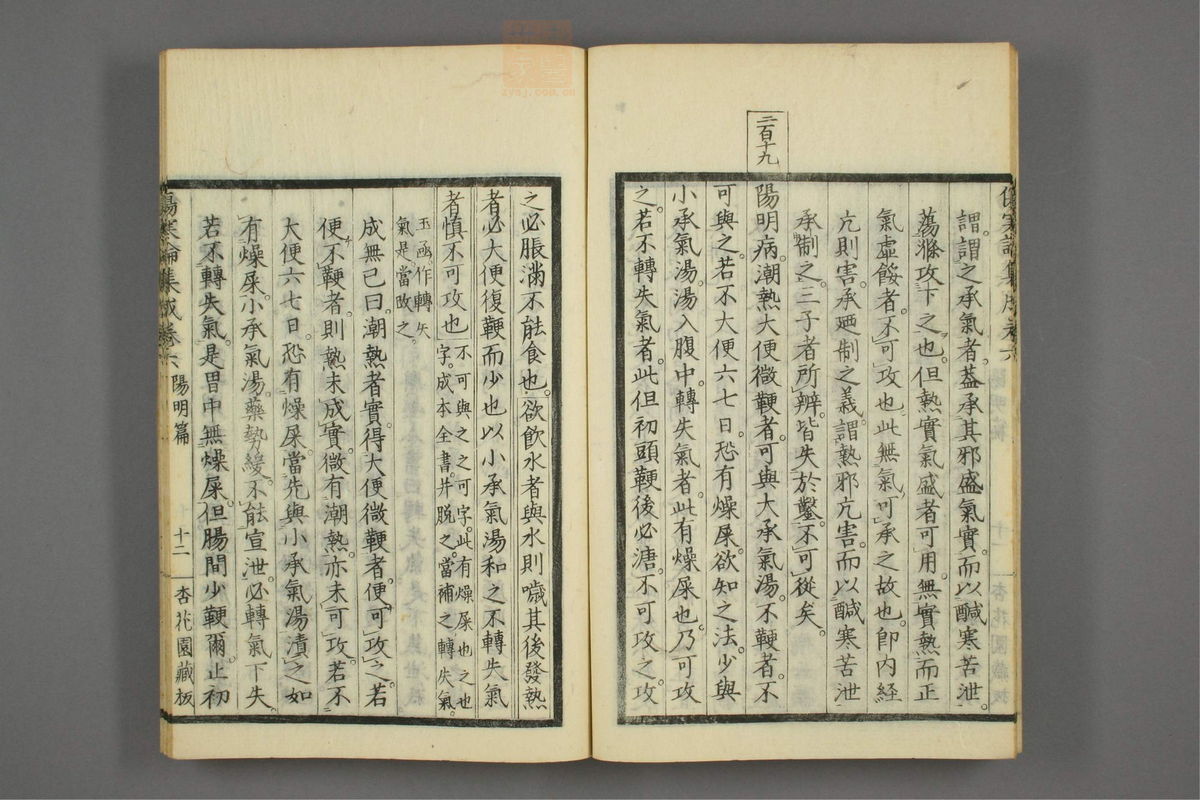 二百十九
謂謂之承氣者蓋承其邪盛氣實而以鹹寒苦泄
蕩滌攻下之也但熱實氣盛者可用無實熱而正
氣虛餒者不可攻也此無氣可承之故也卽內經
亢則害承廼制之義謂熱邪亢害而以鹹寒苦泄
承制之三子者所辨皆失於鑿不可從矣
陽明病潮熱大便微鞕者可與大承氣湯不鞕者不
可與之若不大便六七日恐有燥屎欲知之法少與
小承氣湯湯入腹中轉失氣者此有燥屎也乃可攻
之若不轉失氣者此但初頭鞕後必溏不可攻之攻
之必脹滿不能食也欲飲水者與水則噦其後發熱
者必大便復鞕而少也以小承氣湯和之不轉失氣
者愼不可攻也不可與之之可字此有燥屎也之也字成本全書并脫之當補之轉失氣
玉函作轉矢氣是當改之
成無已曰潮熱者實得大便微鞕者便可攻之若
便不鞕者則熱未成實微有潮熱亦未可攻若不
大便六七日恐有燥屎當先與小承氣湯漬之如
有燥屎小承氣湯藥勢緩不能宣泄必轉氣下失
若不轉失氣是胃中無燥屎但腸間少鞕爾止初
傷寒論集成卷六 陽明篇 十二 杏花園藏板